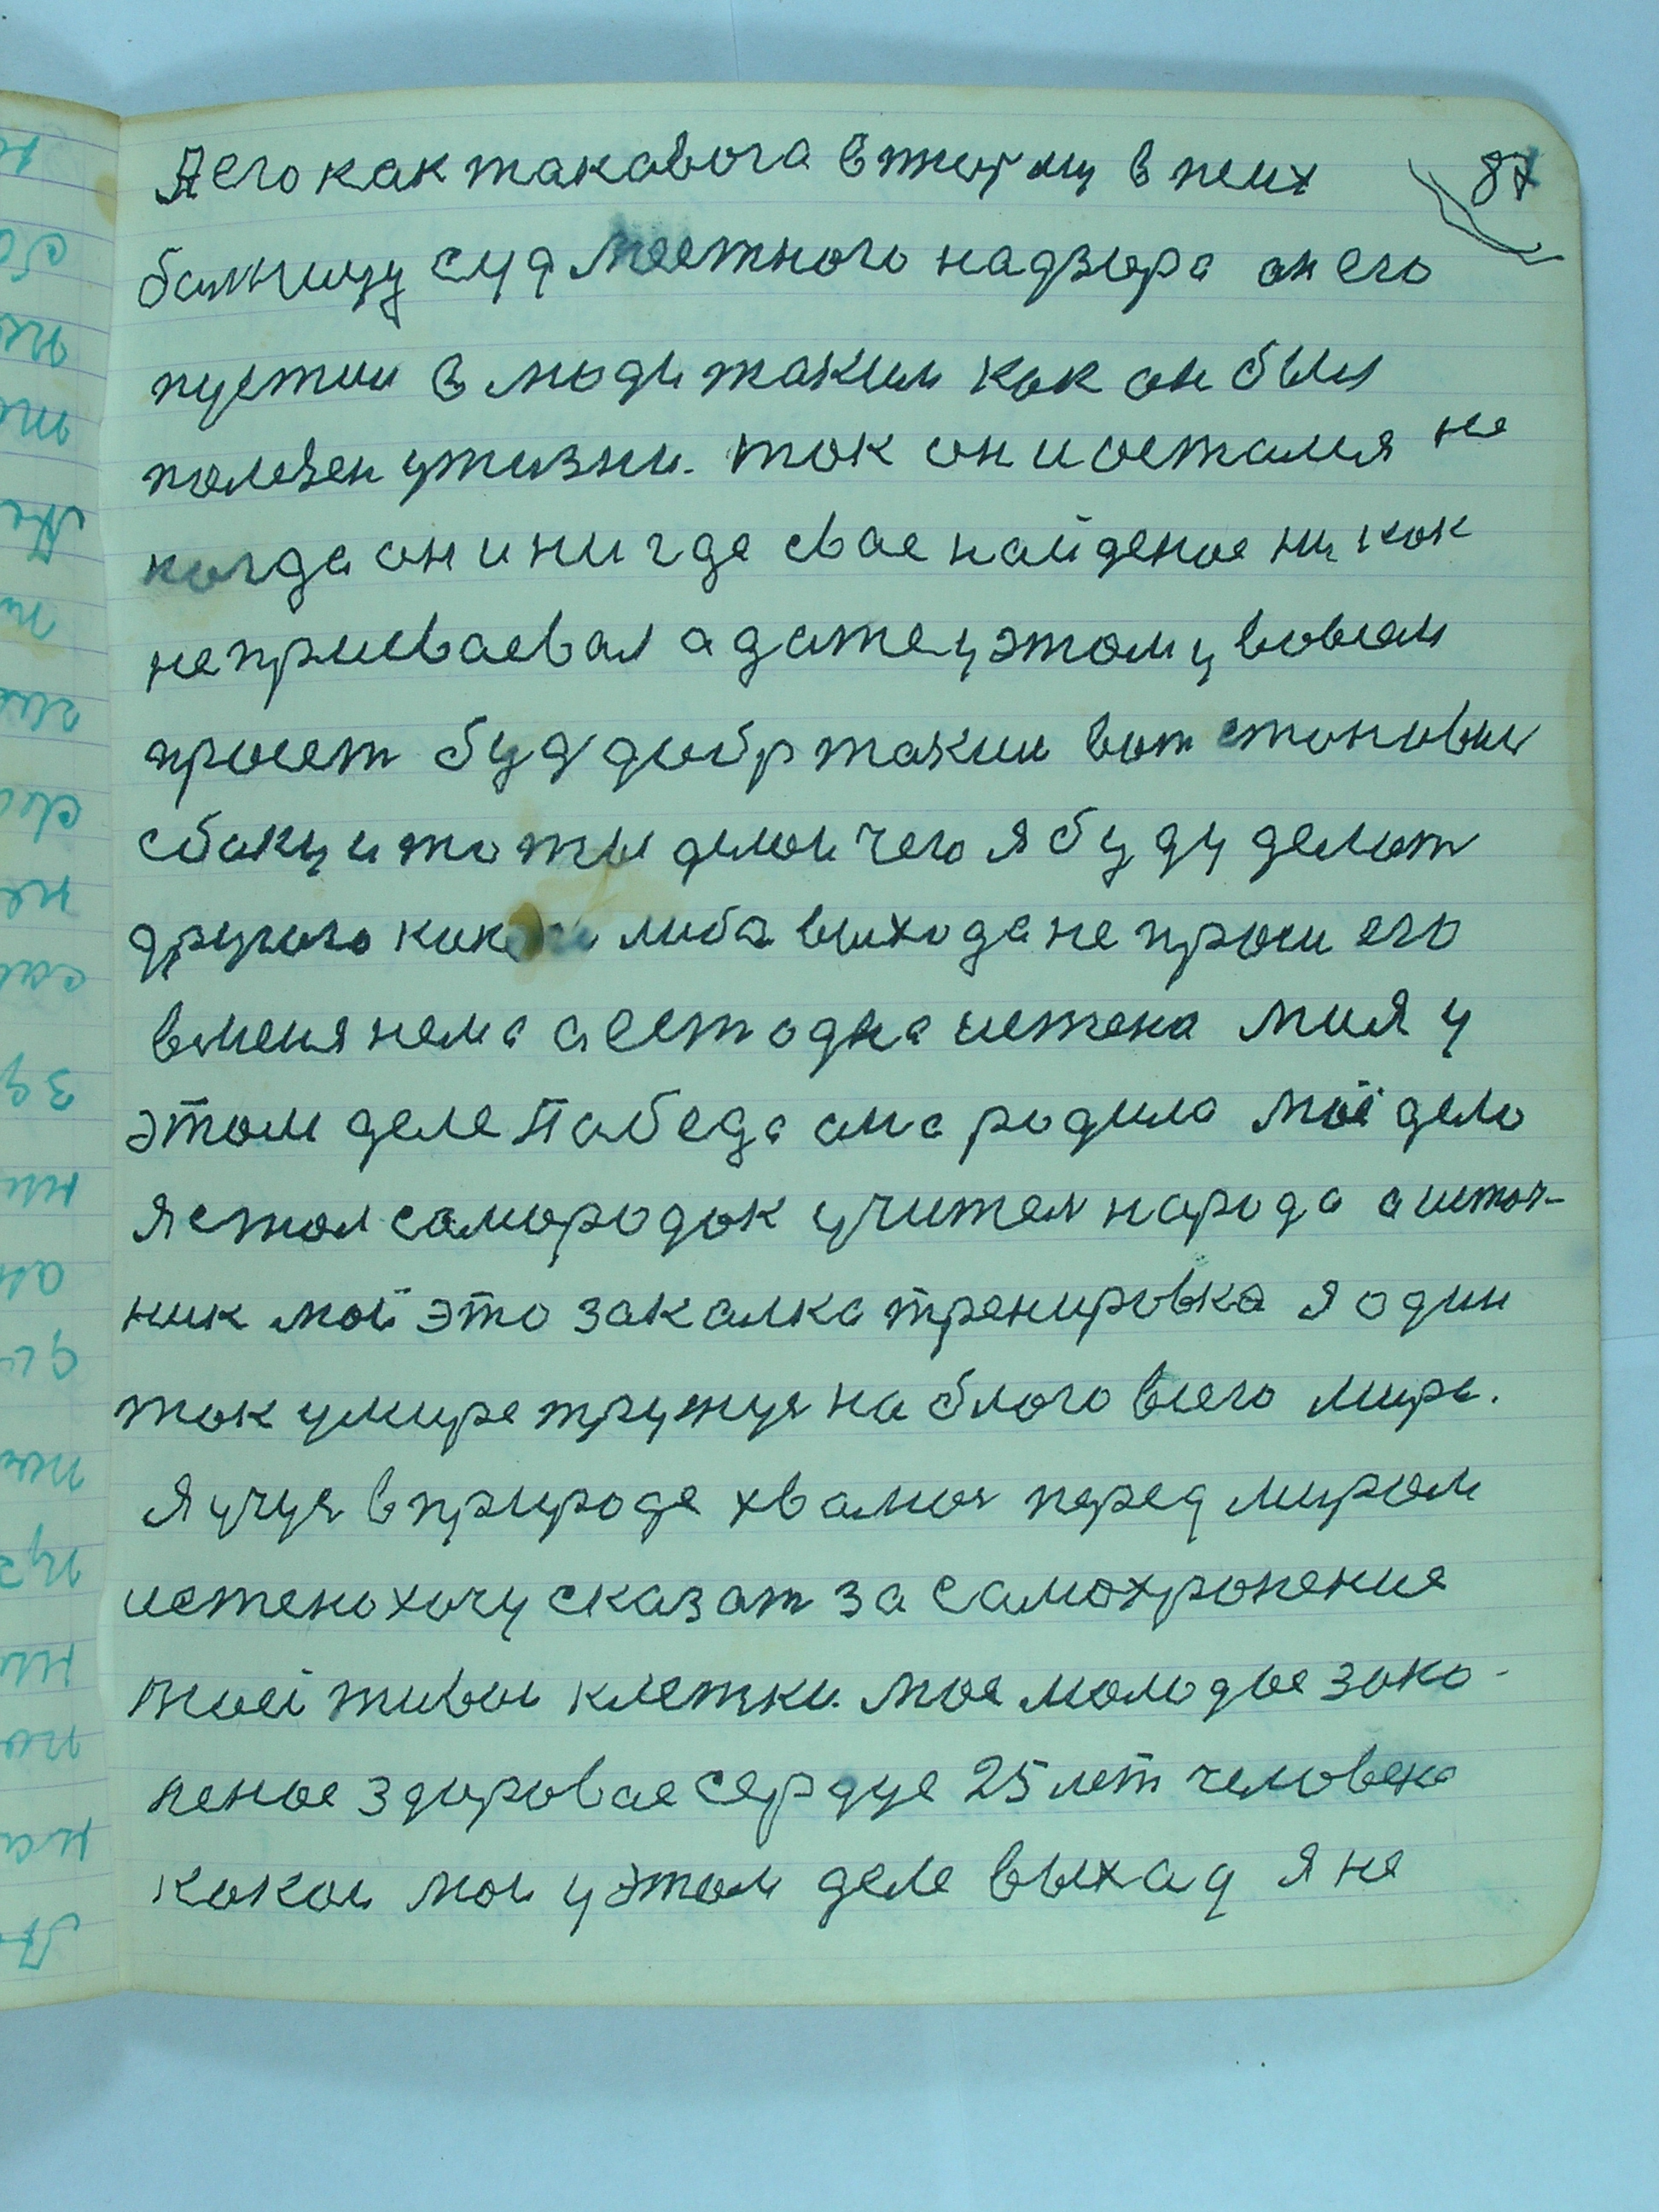 87
Я его как такавога в тюрму в псих
балницу суд местного надзора он его
пустил в люди таким как он был
полезен у жизни. так он и остался не
когда он и нигде свае найденое ни как
не присваевал а даже у этому вовсем
просит будь добр таким вот становис
сбоку и то ты делай чего я буду делат
другого какого либа выхода не проси его
в меня нема а ест одна истена моя у
этом деле Пабеда она родила моё дело
я стал самородок учител народа а источ-
ник мой это закалка тренировка я один
так у мире тружус на благо всего мира.
Я учус в природе хвалюс перед миром
истено хочу сказат за самохронение
твоеі живои клетки. мое молодое зака-
леное здоровае сердце 25 лет человека
какои мои у этом деле выхад я не